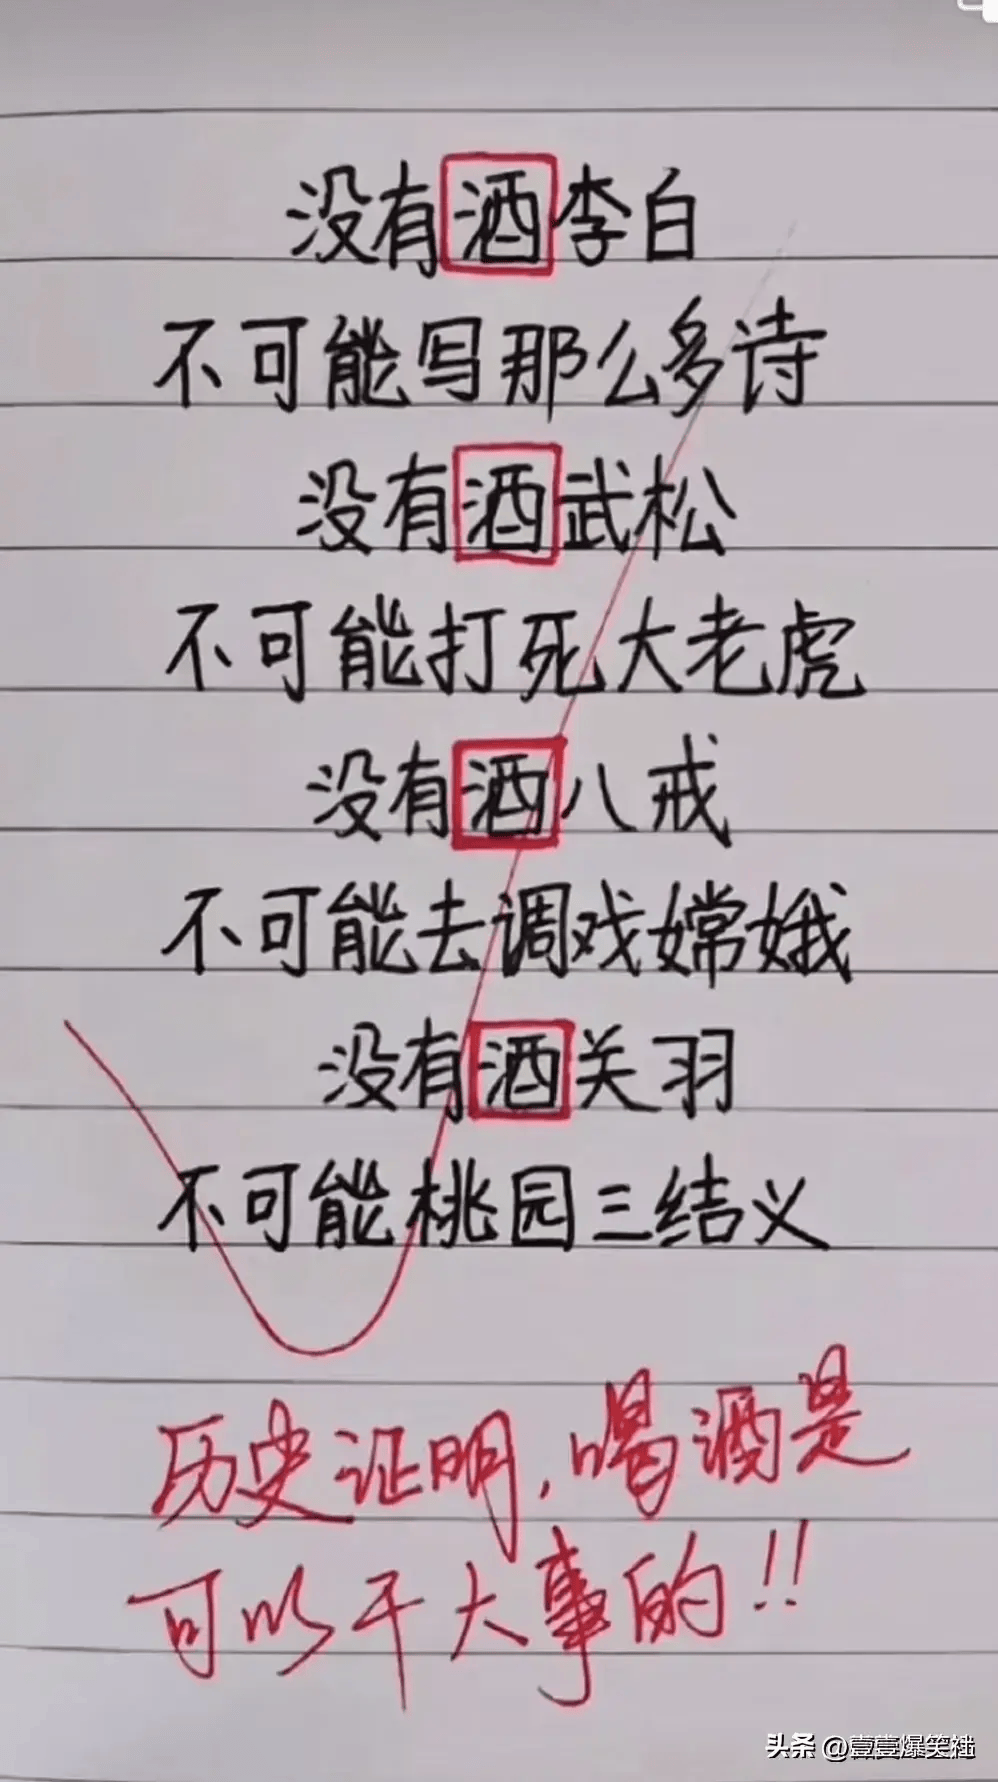 没有酒李白
不可能写那么多诗
没有酒武松
不可能打死大老虎
没有酒八戒
不可能去调戏嫦娥
没有酒关羽
不可能桃园三结义
历史证明,喝酒是
可以干大事的!!
头条 @壹壹爆笑社